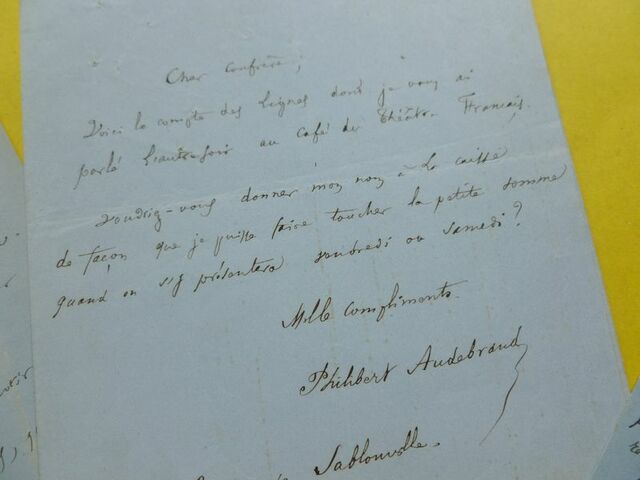 Cher confrère,
Voici le compte des lignes dont je vous ai
parlé l'autre soir au café du Théâtre Français.
Voudriez-vous donner mon nom à la caisse
de façon que je puisse faire toucher la petite somme
quand on s'y présentera vendredi ou samedi?
Mille compliments.
Philibert Audebrand
Sablonville.